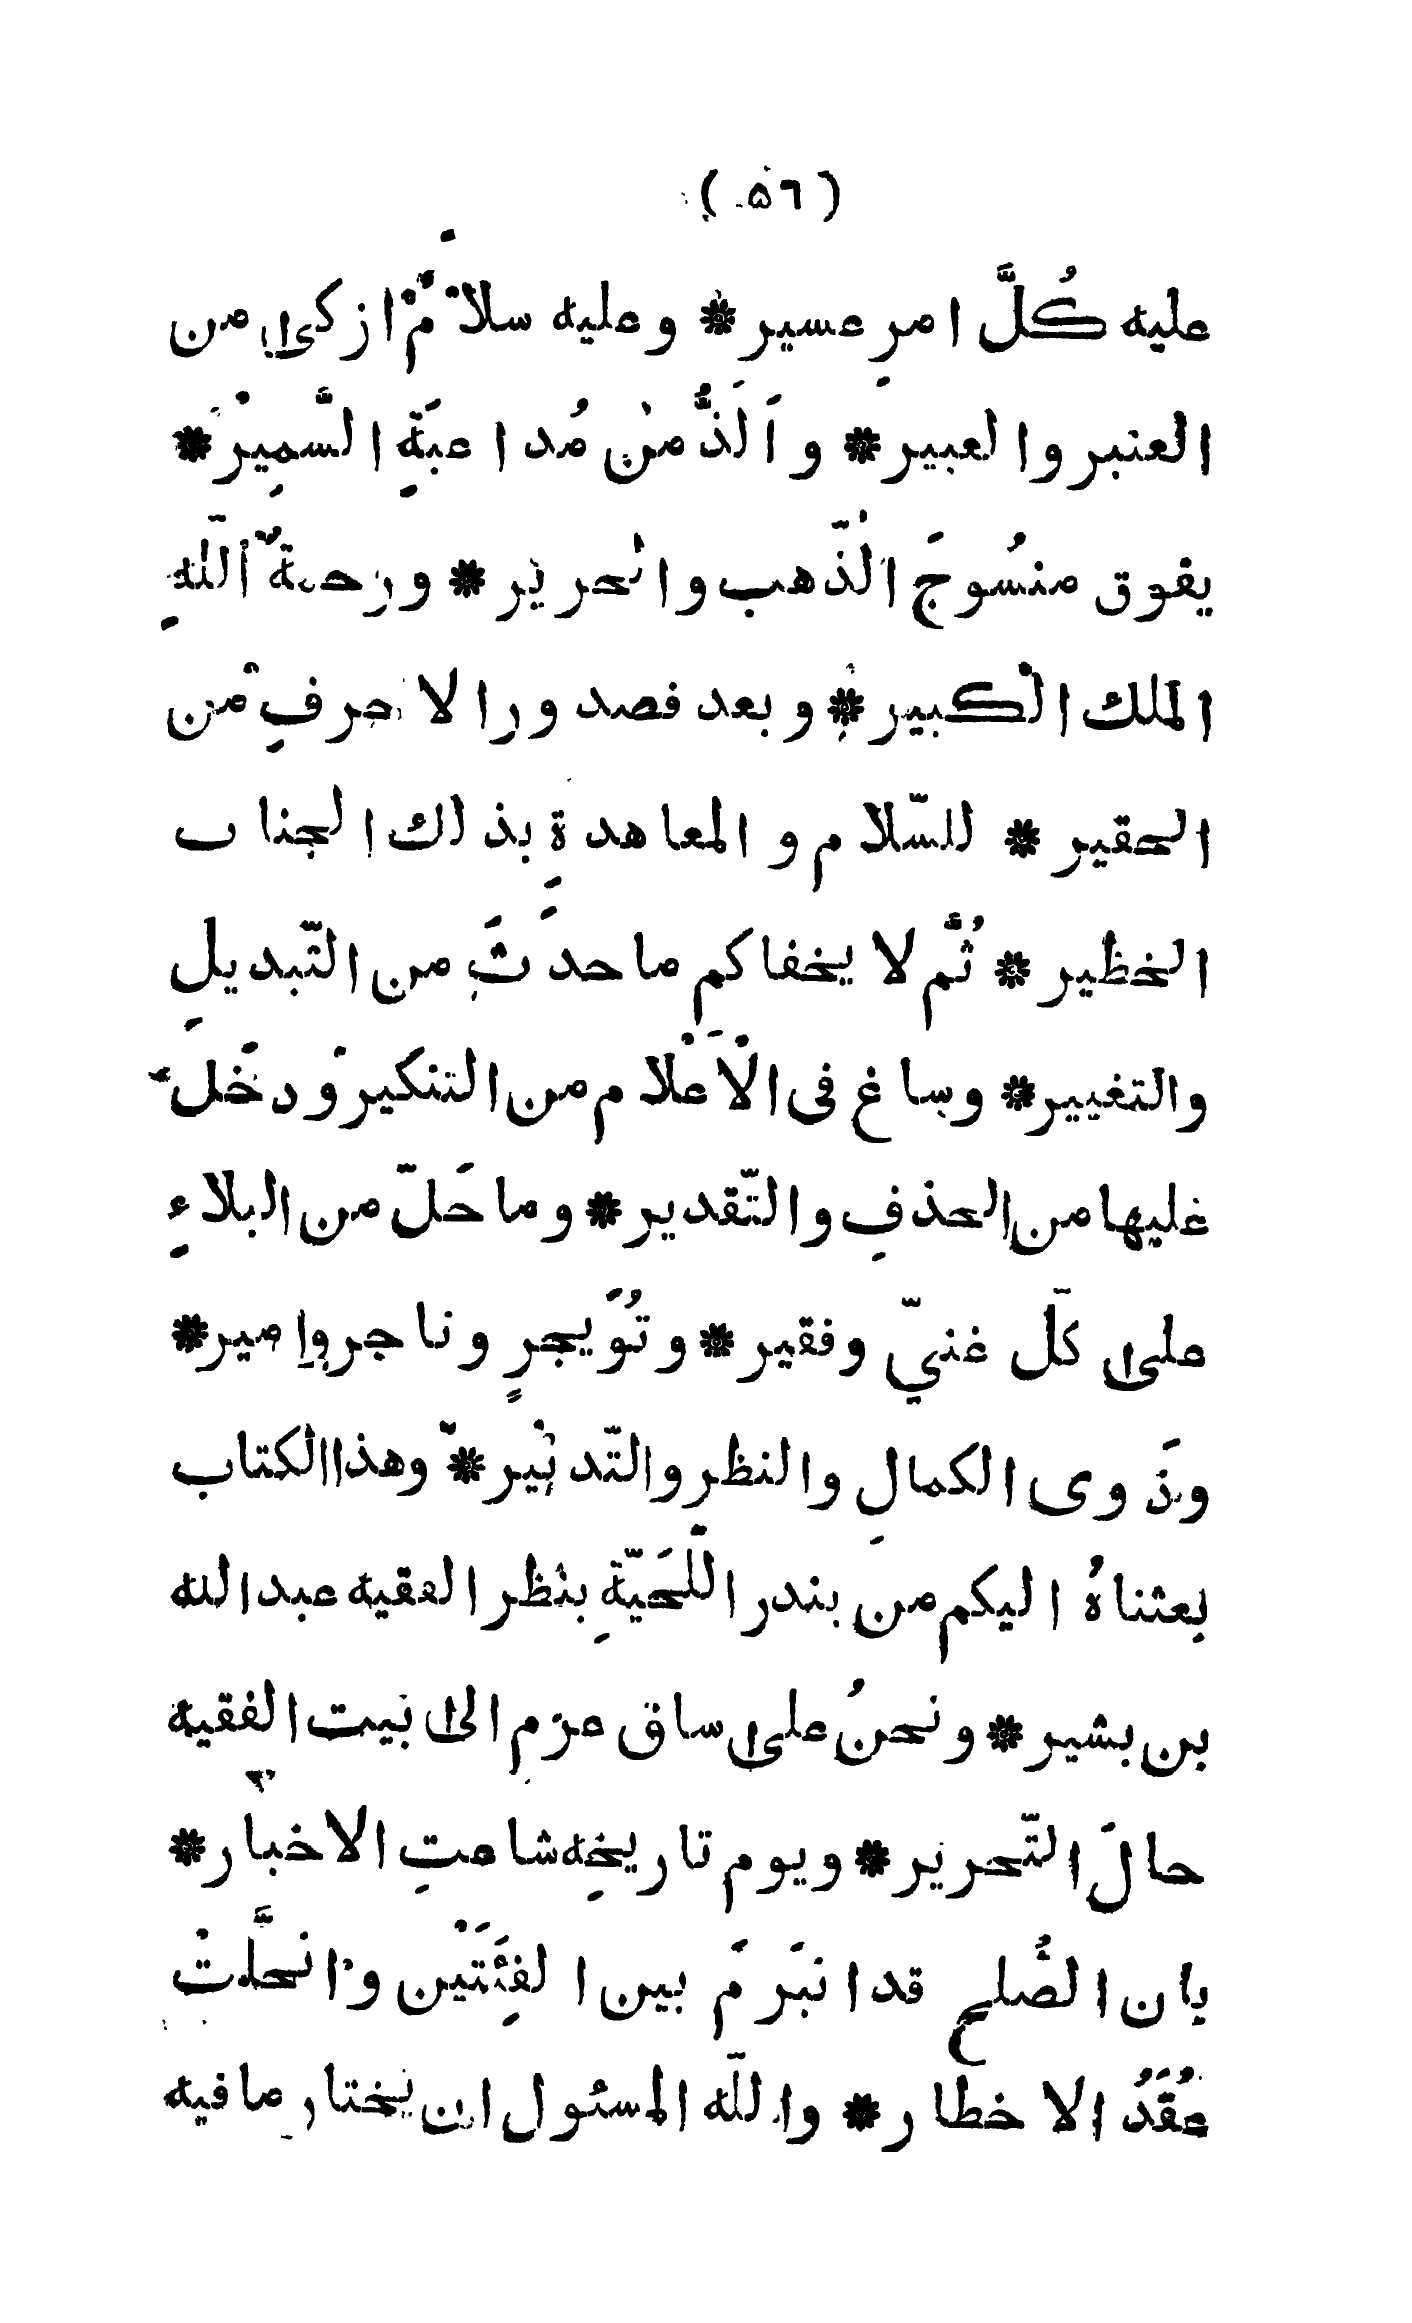 (٥٦)
عليه كُلَّ امرِ عسير * وعليه سلامٌ ازكى من
العنبر والعبير * و اَلَذُّ من مُداعبَةِ السَّمِيْر *
يفوق منسُوجَ الذّهب والحرير * ورحمةُ اللهِ
الملك الكبير * وبعد فصدور الاحرفِ من
الحقير * للسّلام والمعاهدةِ بذلك الجناب
الخظير * ثُمَّ لا يخفاكم ما حدثَ من التّبديلِ
والتغيير * وساغ فى الْاَعْلام من التنكير ودخَلَ
عليها من الحذفِ والتّقدير * وما حَلّ من البلاءِ
على كلّ غنيّ وفقير * و تُوَيجرٍ وتاجر وامير *
وذَوى الكمالِ والنظر والتّدبير * وهذا الكتاب
بعثناهُ اليكم من بندر اللُّحَيّةِ بنظر الفقيه عبد الله
بن بشير * ونحنُ على ساق عزم الى بيت الفقيه
حالَ التّحرير * ويوم تاريخِه شاعتِ الاخبار *
بان الصُّلح قد انبَرَمَ بين الفِئَتَيْنِ وانحلَّتْ
عُقَدُ الاخطار * والله المسئول ان يختار ما فيه